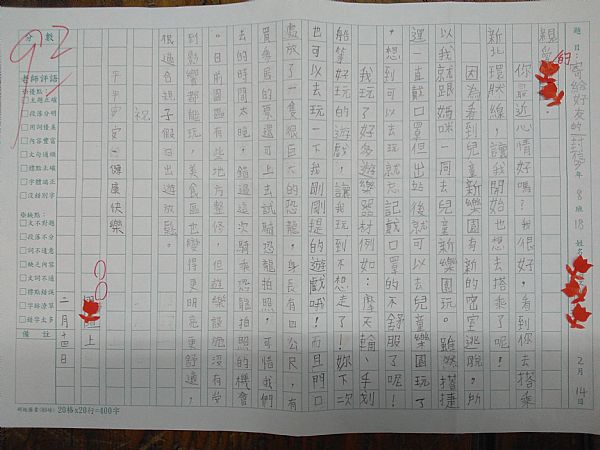 題目：寄給好友的一封信 年8班18 姓名 2月14日
親愛的
你最近心情好嗎？我很好，看到你去搭乘
新北環狀線，讓我開始也想去搭起了呢！
因為看到兒童新樂園有新的密室逃脫，所
以我就跟媽咪一同去兒童新樂園玩。雖然搭捷
運一直戴口罩但出站後就可以去兒童樂園玩了
，想到可以去玩就忘記戴口罩的不舒服了呢！
我玩了好多遊樂器材例如：摩天輪、手划
船等好玩的遊戲，讓我玩到不想走了！妳下次
也可以去玩一下我剛剛提的遊戲哦！而且門口
處放一隻很巨大的恐龍，身長有四公尺，有
買參展的票還可上去試騎恐龍拍照，可惜我們
去的時間太晚，錯過這次騎乘恐龍拍照的機會
。目前園區有些地方整修，但遊樂設施沒有受
到影響都能玩，美食區也變得更明亮更舒適，
很適合親子假日出遊放鬆。
祝
平平安安、健康快樂
上
二月十四日
分數
92
老師評語
※優點：
□主題正確
□段落分明
□用詞優美
□內容豐富
□文句通順
□標點正確
□字體端正
□沒錯別字
※缺點：
□文不對題
□段落不分
□詞不達意
□缺乏內容
□文詞不通
□標點錯誤
□字跡潦草
□錯字太多
備註
20格x20行=400字